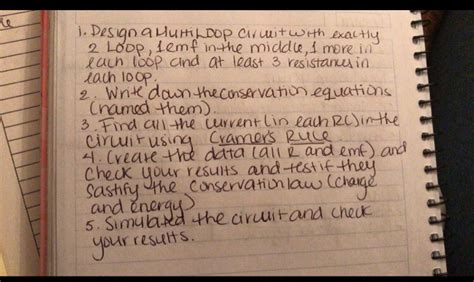 1. Design a Multi Loop Circuit with exactly
2 Loop, 1 emf in the middle, 1 more in
each loop and at least 3 resistances in
each loop.
2. Write down the conservation equations
(named them).
3. Find all the current (in each R) in the
circuit using Cramer's Rule
4. Create the data (all R and emf) and
check your results and test if they
sastify the conservation law (charge
and energy)
5. Simulated the circuit and check
your results.